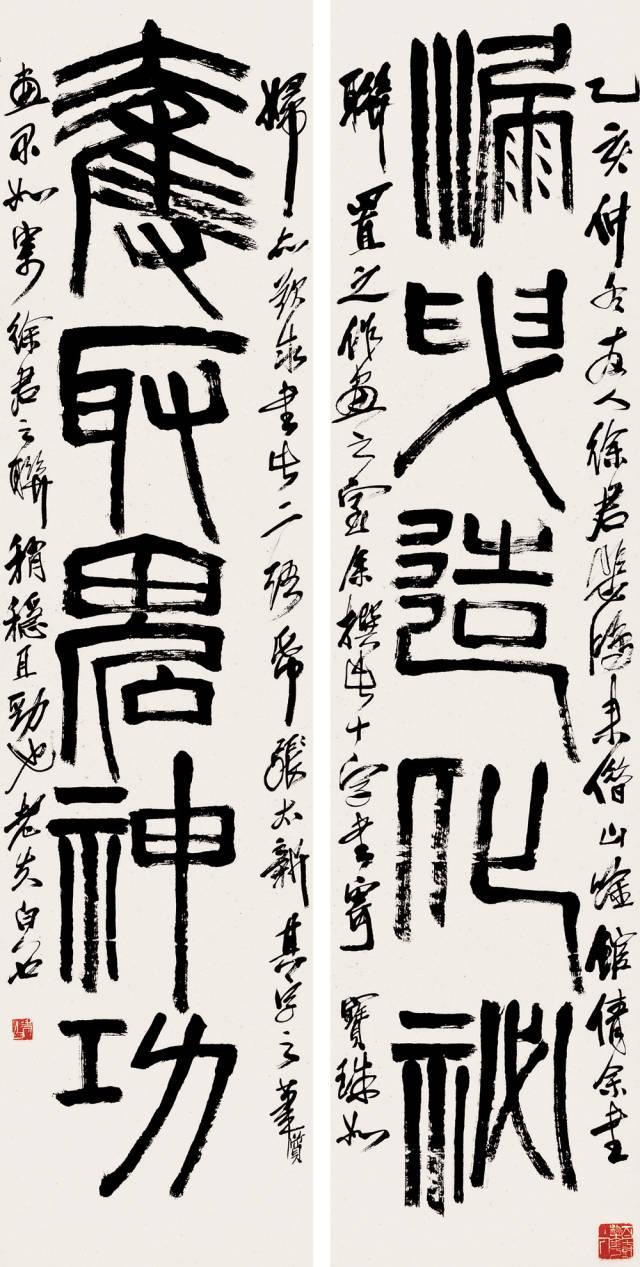 乙亥仲冬友人徐君悲鴻來借山吟館倩余書
漏曳造化祕
聯置之作畫之室余撰此十字書寄寶珠如
婦亦欲余書此二語紙張太新其字之筆
奪取鬼神功
畫不如寄徐君之聯稍穩且勁也老夫白石